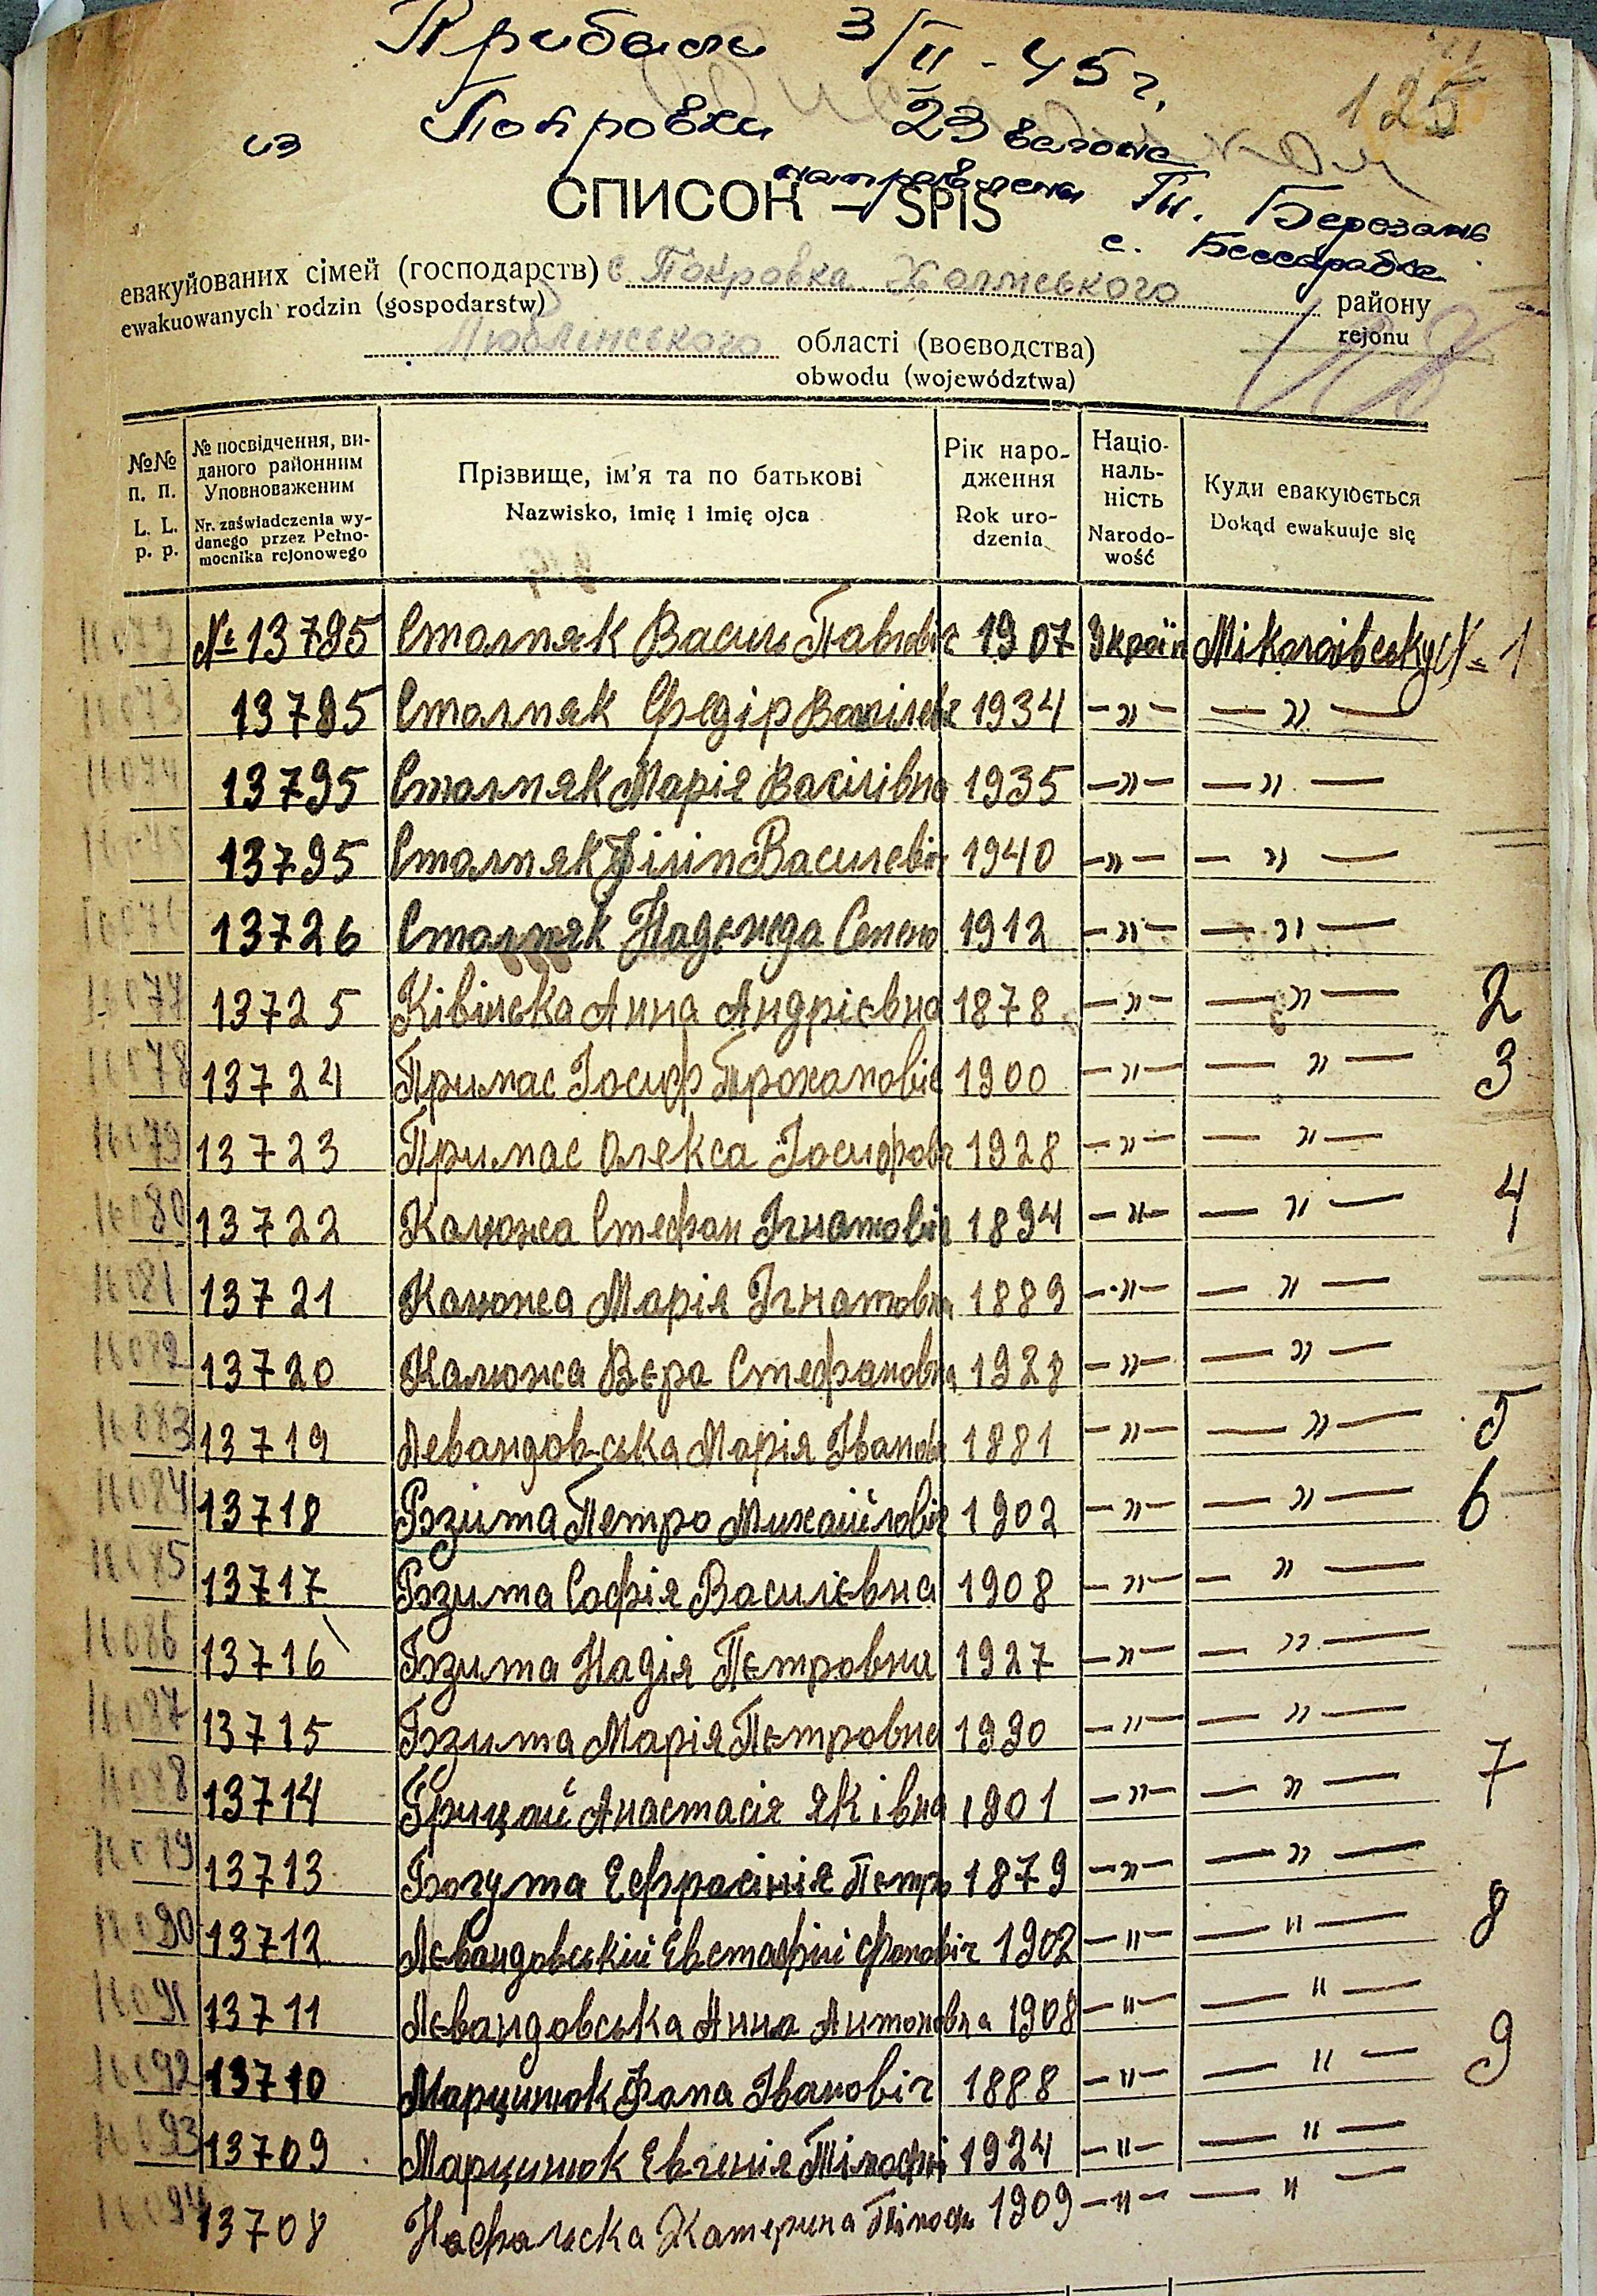 Прибали 3/II - 45 г.
125
из Покровки 23 вагона
направлены Ст. Березань
с. Бессарабка
СПИСОК — SPIS
евакуйованих сімей (господарств) с. Покровка Холмського району
ewakuowanych rodzin (gospodarstw) rejonu
Люблінського області (воєводства)
obwodu (województwa)
№№ п. п. L. L. p. p.
№ посвідчення, виданого районним Уповноваженим
Nr. zaświadczenia wydanego przez Pełnomocnika rejonowego
Прізвище, ім'я та по батькові
Nazwisko, imię i imię ojca
Рік народження
Rok urodzenia
Національність
Narodowość
Куди евакуюється
Dokąd ewakuuje się
№ 13795 Столпяк Василь Павлович 1907 Украін Міколаівську 1
16073 13795 Столпяк Федір Васілевіч 1934 -"- -"-
16074 13795 Столпяк Марія Васілівна 1935 -"- -"-
13795 Столпяк Філіп Василевіч 1940 -"- -"-
16076 13726 Столпяк Надежда Семено 1912 -"- -"-
16077 13725 Ківінська Анна Андрієвна 1878 -"- -"- 2
16078 13724 Примас Іосиф Прохаповіч 1900 -"- -"- 3
16079 13723 Примас Олекса Іосифовіч 1928 -"- -"-
16080 13722 Калюжа Стефан Ігнатовіч 1894 -"- -"- 4
16081 13721 Калюжа Марія Ігнатовна 1889 -"- -"-
16082 13720 Калюжа Вєра Стефановна 1928 -"- -"-
16083 13719 Левандов-ська Марія Іванов 1881 -"- -"- 5
16084 13718 Гзита Петро Михайловіч 1902 -"- -"- 6
16085 13717 Гзита Софія Василєвна 1908 -"- -"-
16086 13716 Гзита Надія Пєтровна 1927 -"- -"-
16087 13715 Гзита Марія Пєтровна 1930 -"- -"-
16088 13714 Грицай Анастасія Яківна 1901 -"- -"- 7
16089 13713 Богута Ефрасінія Пєтро 1879 -"- -"-
16090 13712 Лєвандовській Евстафій Фомовіч 1902 -"- -"- 8
16091 13711 Лєвандовська Анна Антоновна 1908 -"- -"-
16092 13710 Марцинюк Фома Івановіч 1888 -"- -"- 9
16093 13709 Марцинюк Евгенія Тімофі 1924 -"- -"-
16094 13708 Насфальска Катерина Тімофі 1909 -"- -"-